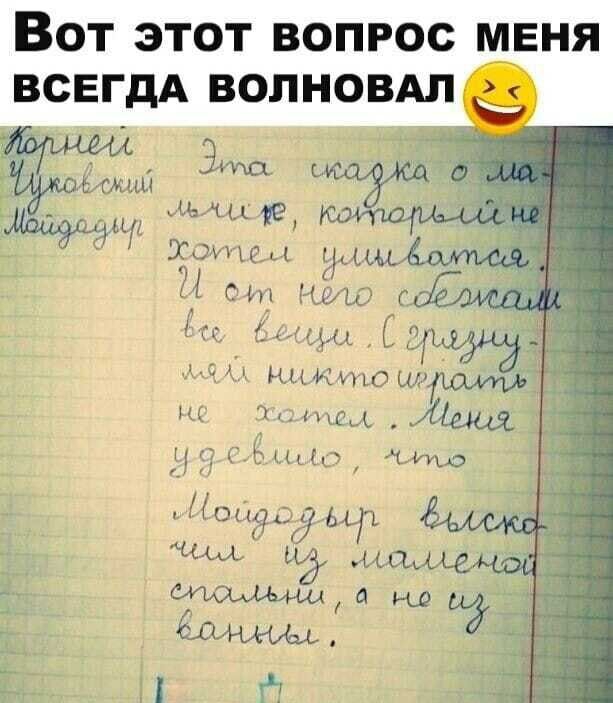 Вот этот вопрос меня
всегда волновал
Корней
Чуковский
Мойдодыр
Эта сказка о ма-
льчике, который не
хотел умыватся.
И от него сбежали
все вещи. С грязну-
лей никто играть
не хотел. Меня
удевило, что
Мойдодыр выско-
чил из маменой
спальни, а не из
ванны.